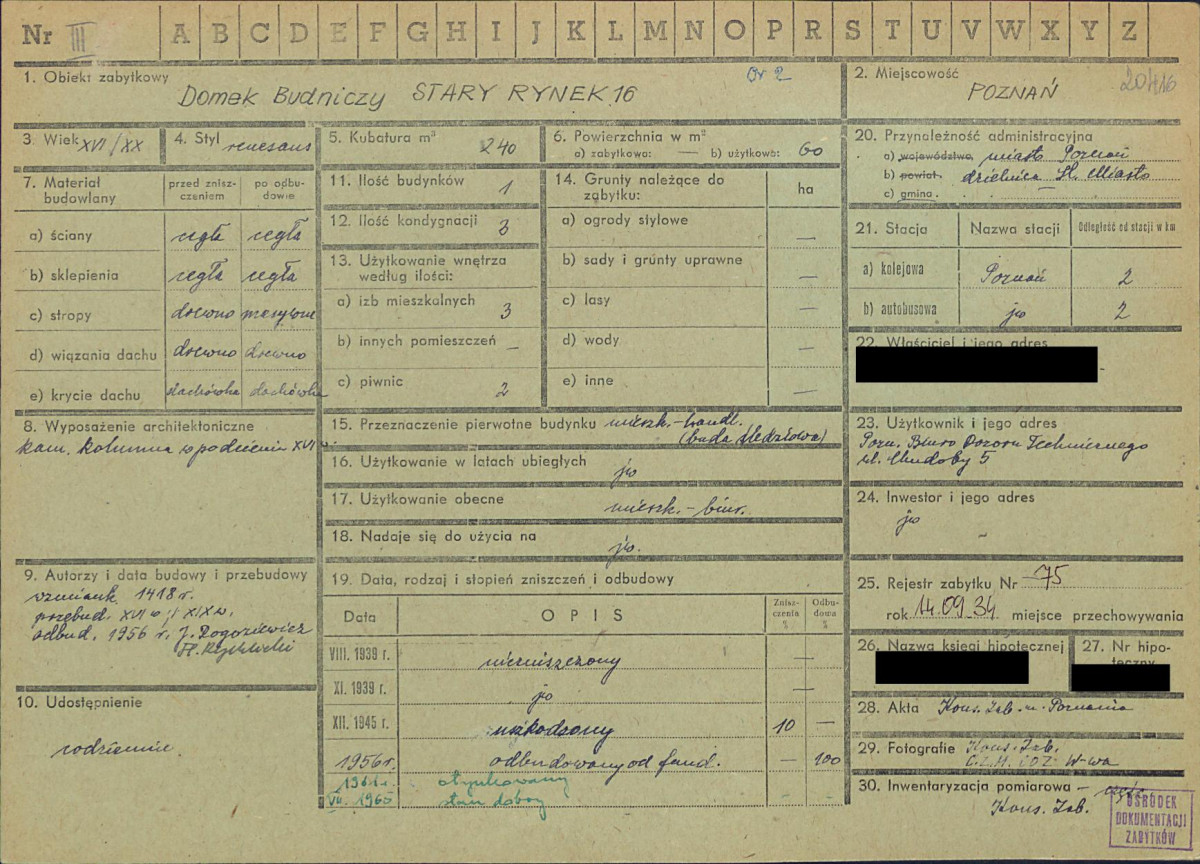 Nr III A B C D E F G H I J K L M N O P R S T U V W X Y Z
1. Obiekt zabytkowy
Domek Budniczy STARY RYNEK 16
2. Miejscowość
POZNAŃ
3. Wiek XVI/XX
4. Styl renesans
5. Kubatura m³ 240
6. Powierzchnia w m²
a) zabytkowa: — b) użytkowa: 60
7. Materiał budowlany
przed zniszczeniem
po odbudowie
a) ściany cegła cegła
b) sklepienia cegła cegła
c) stropy drewno masywne
d) wiązania dachu drewno drewno
e) krycie dachu dachówka dachówka
8. Wyposażenie architektoniczne
kam. kolumna w podcieniu XVI w.
9. Autorzy i data budowy i przebudowy
wzmiank. 1418 r.
przebud. XVI w. i XIX w.
odbud. 1956 r. J.
10. Udostępnienie
codziennie.
11. Ilość budynków 1
12. Ilość kondygnacji 3
13. Użytkowanie wnętrza według ilości:
a) izb mieszkalnych 3
b) innych pomieszczeń —
c) piwnic 2
14. Grunty należące do zabytku: ha
a) ogrody stylowe —
b) sady i grunty uprawne —
c) lasy —
d) wody —
e) inne —
15. Przeznaczenie pierwotne budynku mieszk.-handl.
(buda śledziowa)
16. Użytkowanie w latach ubiegłych jw
17. Użytkowanie obecne mieszk.-biur.
18. Nadaje się do użycia na jw.
19. Data, rodzaj i stopień zniszczeń i odbudowy
Data OPIS Zniszczenia % Odbudowa %
VIII. 1939 r. niezniszczony —
XI. 1939 r. jw —
XII. 1945 r. uszkodzony 10 —
1956 r. odbudowany od fund. — 100
1961 r. otynkowany
VII. 1965 stan dobry - -
20. Przynależność administracyjna
a) województwo, miasto Poznań
b) powiat. dzielnica St. Miasto
c) gmina.
21. Stacja Nazwa stacji Odległość od stacji w km
a) kolejowa Poznań 2
b) autobusowa jw 2
22. Właściciel i jego adres
23. Użytkownik i jego adres
Pozn. Biuro Dozoru Technicznego
ul. Chudoby 5
24. Inwestor i jego adres
jw
25. Rejestr zabytku Nr 75
rok 14.09.34 miejsce przechowywania
26. Nazwa księgi hipotecznej
27. Nr hipoteczny
28. Akta Kons. Zab. m. Poznania
29. Fotografie Kons. Zab.
W-wa
30. Inwentaryzacja pomiarowa — część
Kons. Zab.
OŚRODEK
DOKUMENTACJI
ZABYTKÓW